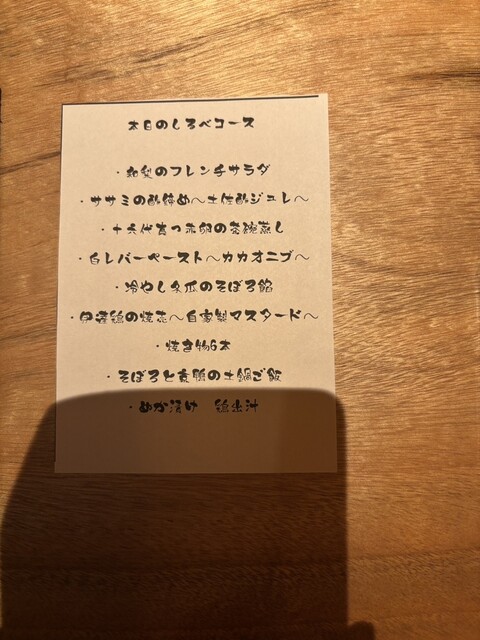 本日のしろべコース
・和梨のフレンチサラダ
・ササミの酢締め〜土佐酢ジュレ〜
・十六代真っ赤卵の茶碗蒸し
・白レバーペースト〜カカオニブ〜
・冷やし冬瓜のそぼろ餡
・伊達鶏の焼売〜自家製マスタード〜
・焼き物6本
・そぼろと黄鶏の土鍋ご飯
・ぬか漬け　鶏出汁